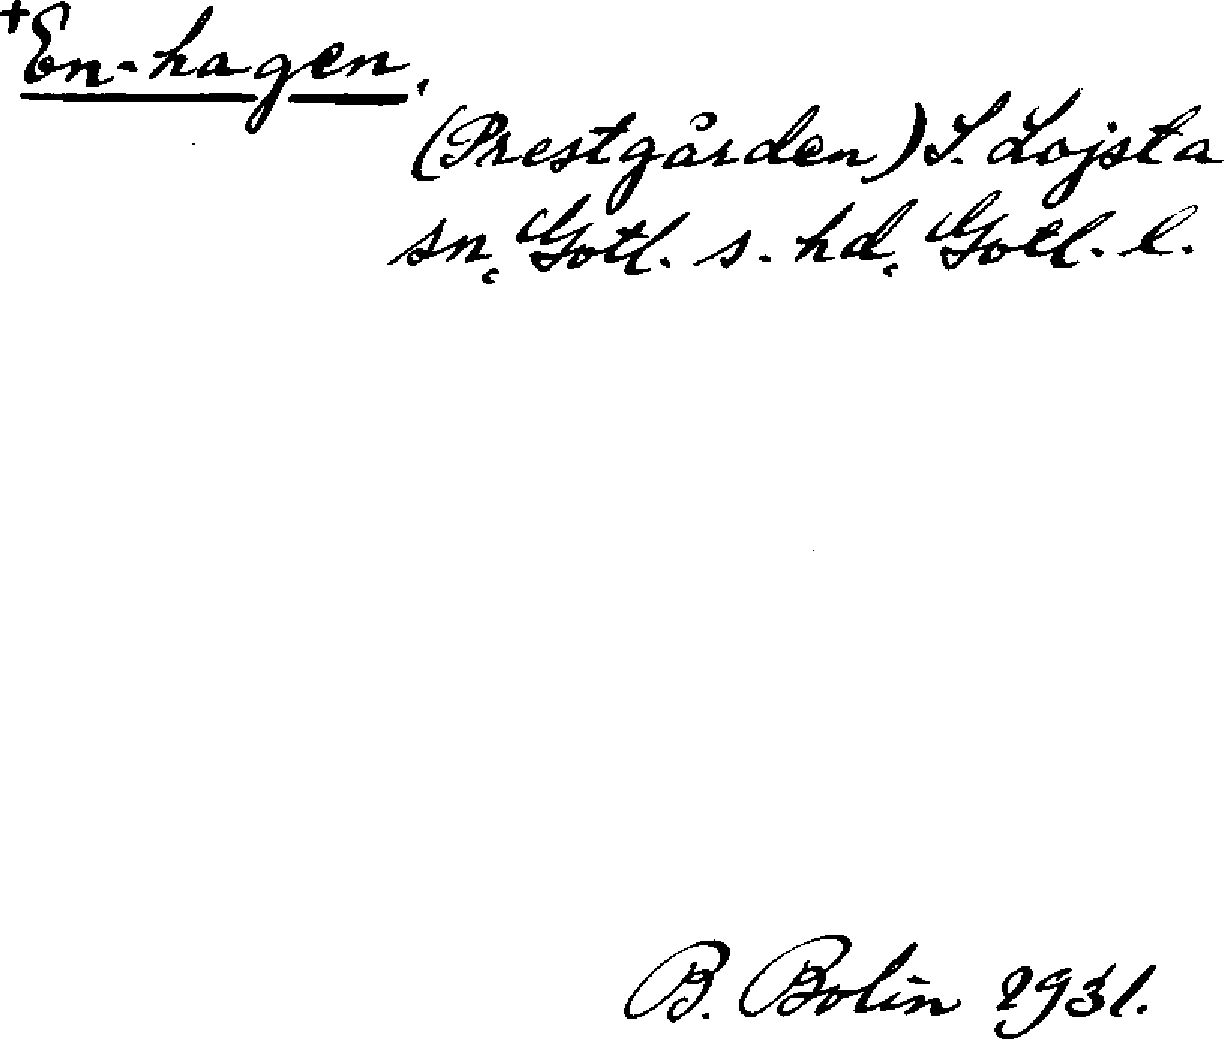 +En-hagen.
(Prestgården) I. Lojsta
sn, Gotl. s. hd, Gotl. l.
B. Bolin 1931.